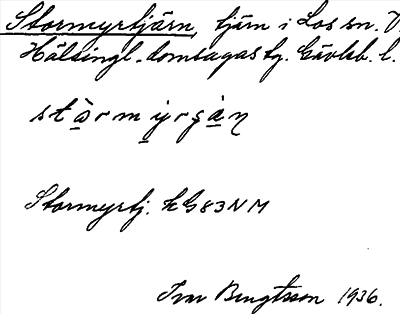 Stormyrtjärn, tjärn i Los sn. V.
Hälsingl. domsagas tg. Gävleb. l.
stòrmyrgàn
Stormyrtj. kG83NM
Ivar Bengtsson 1936.